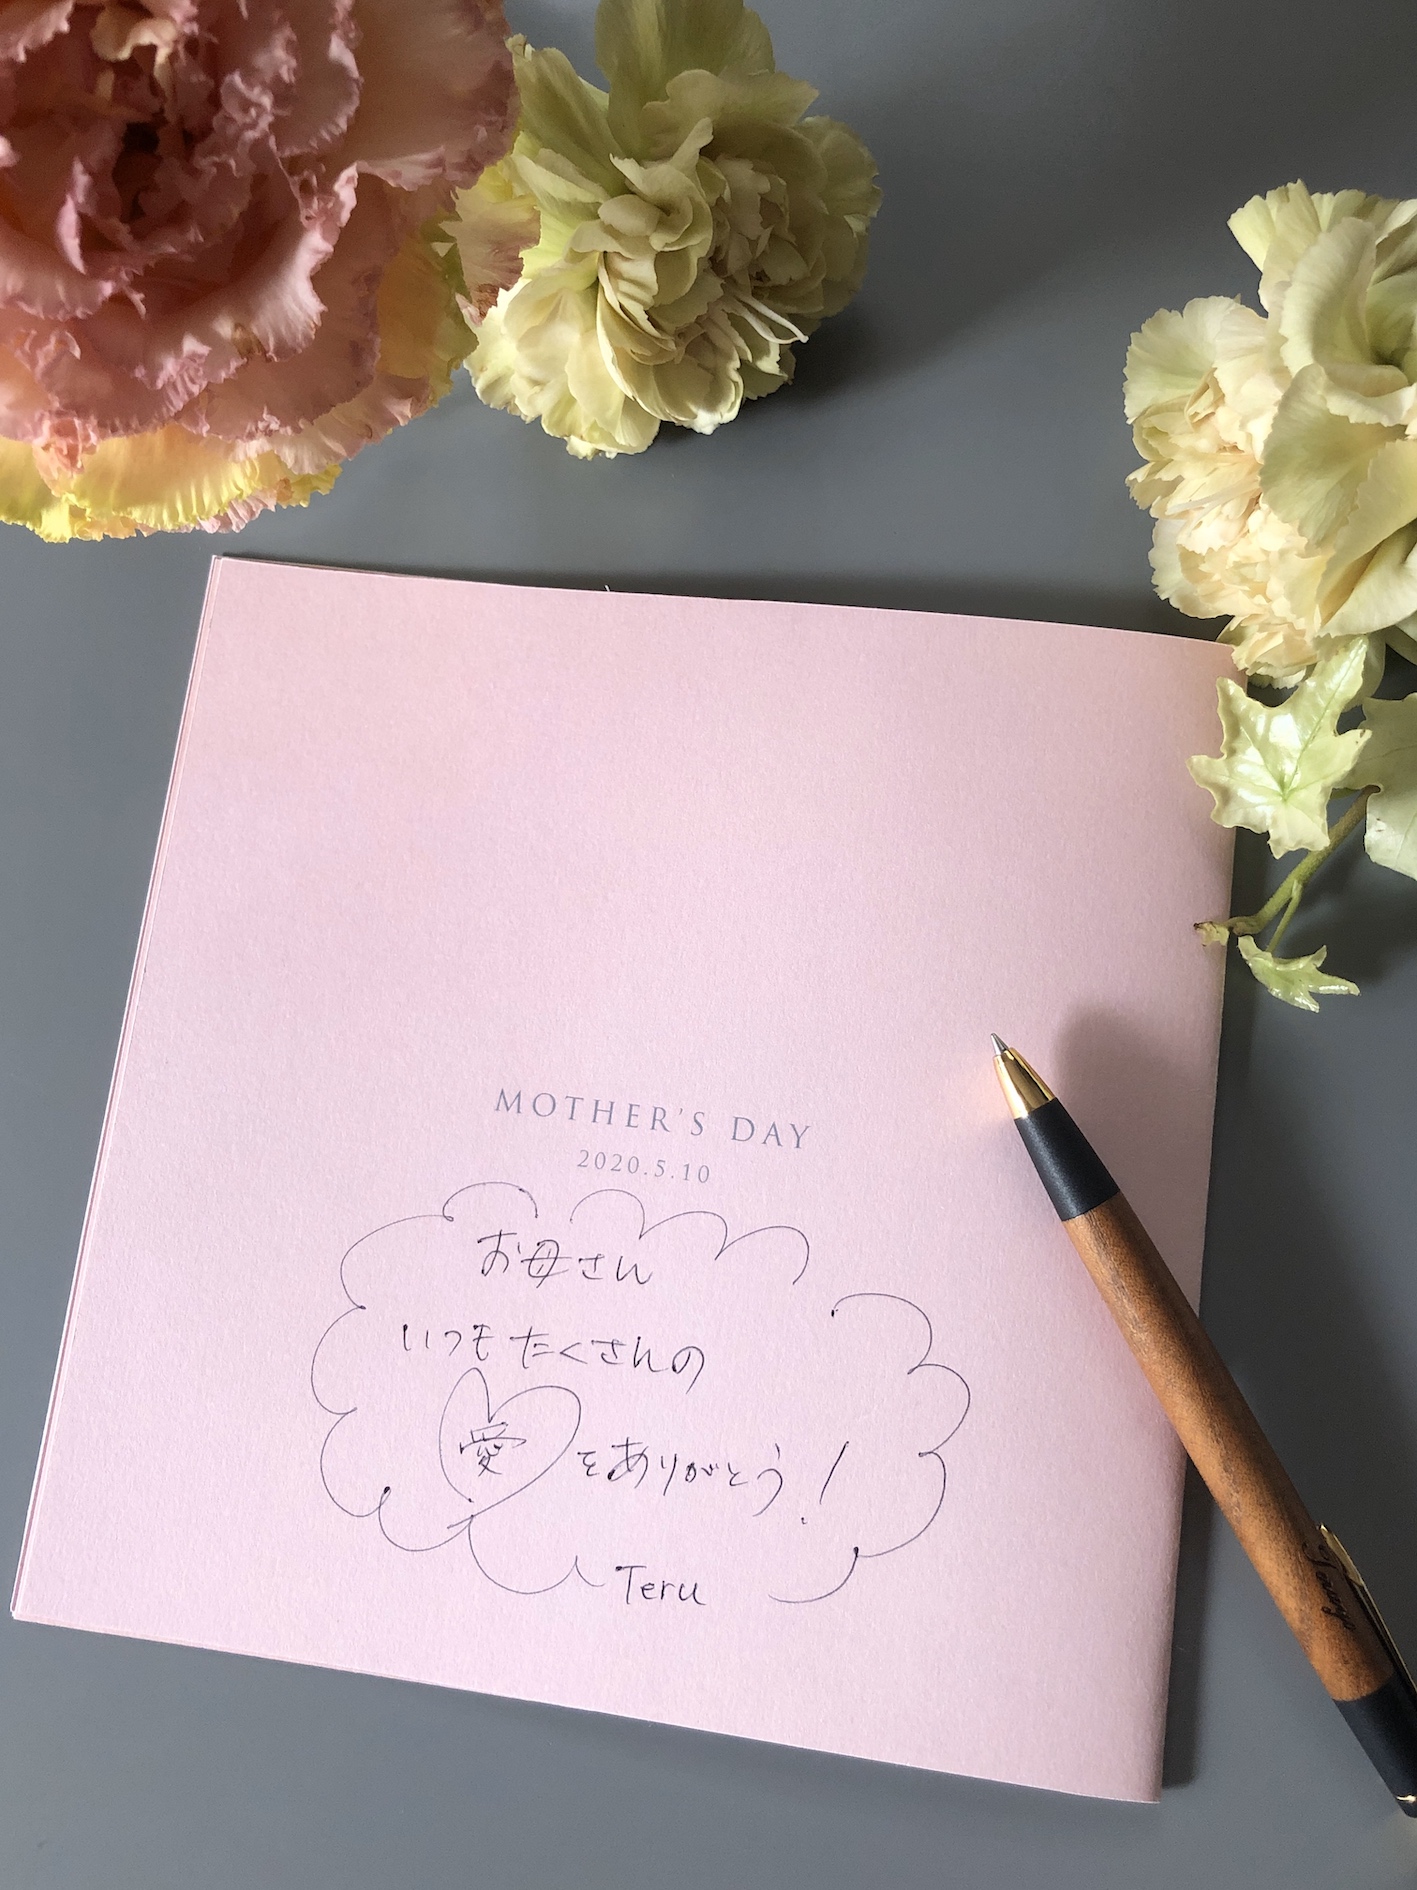 MOTHER'S DAY
2020.5.10
お母さん
いつもたくさんの
愛をありがとう!
Teru